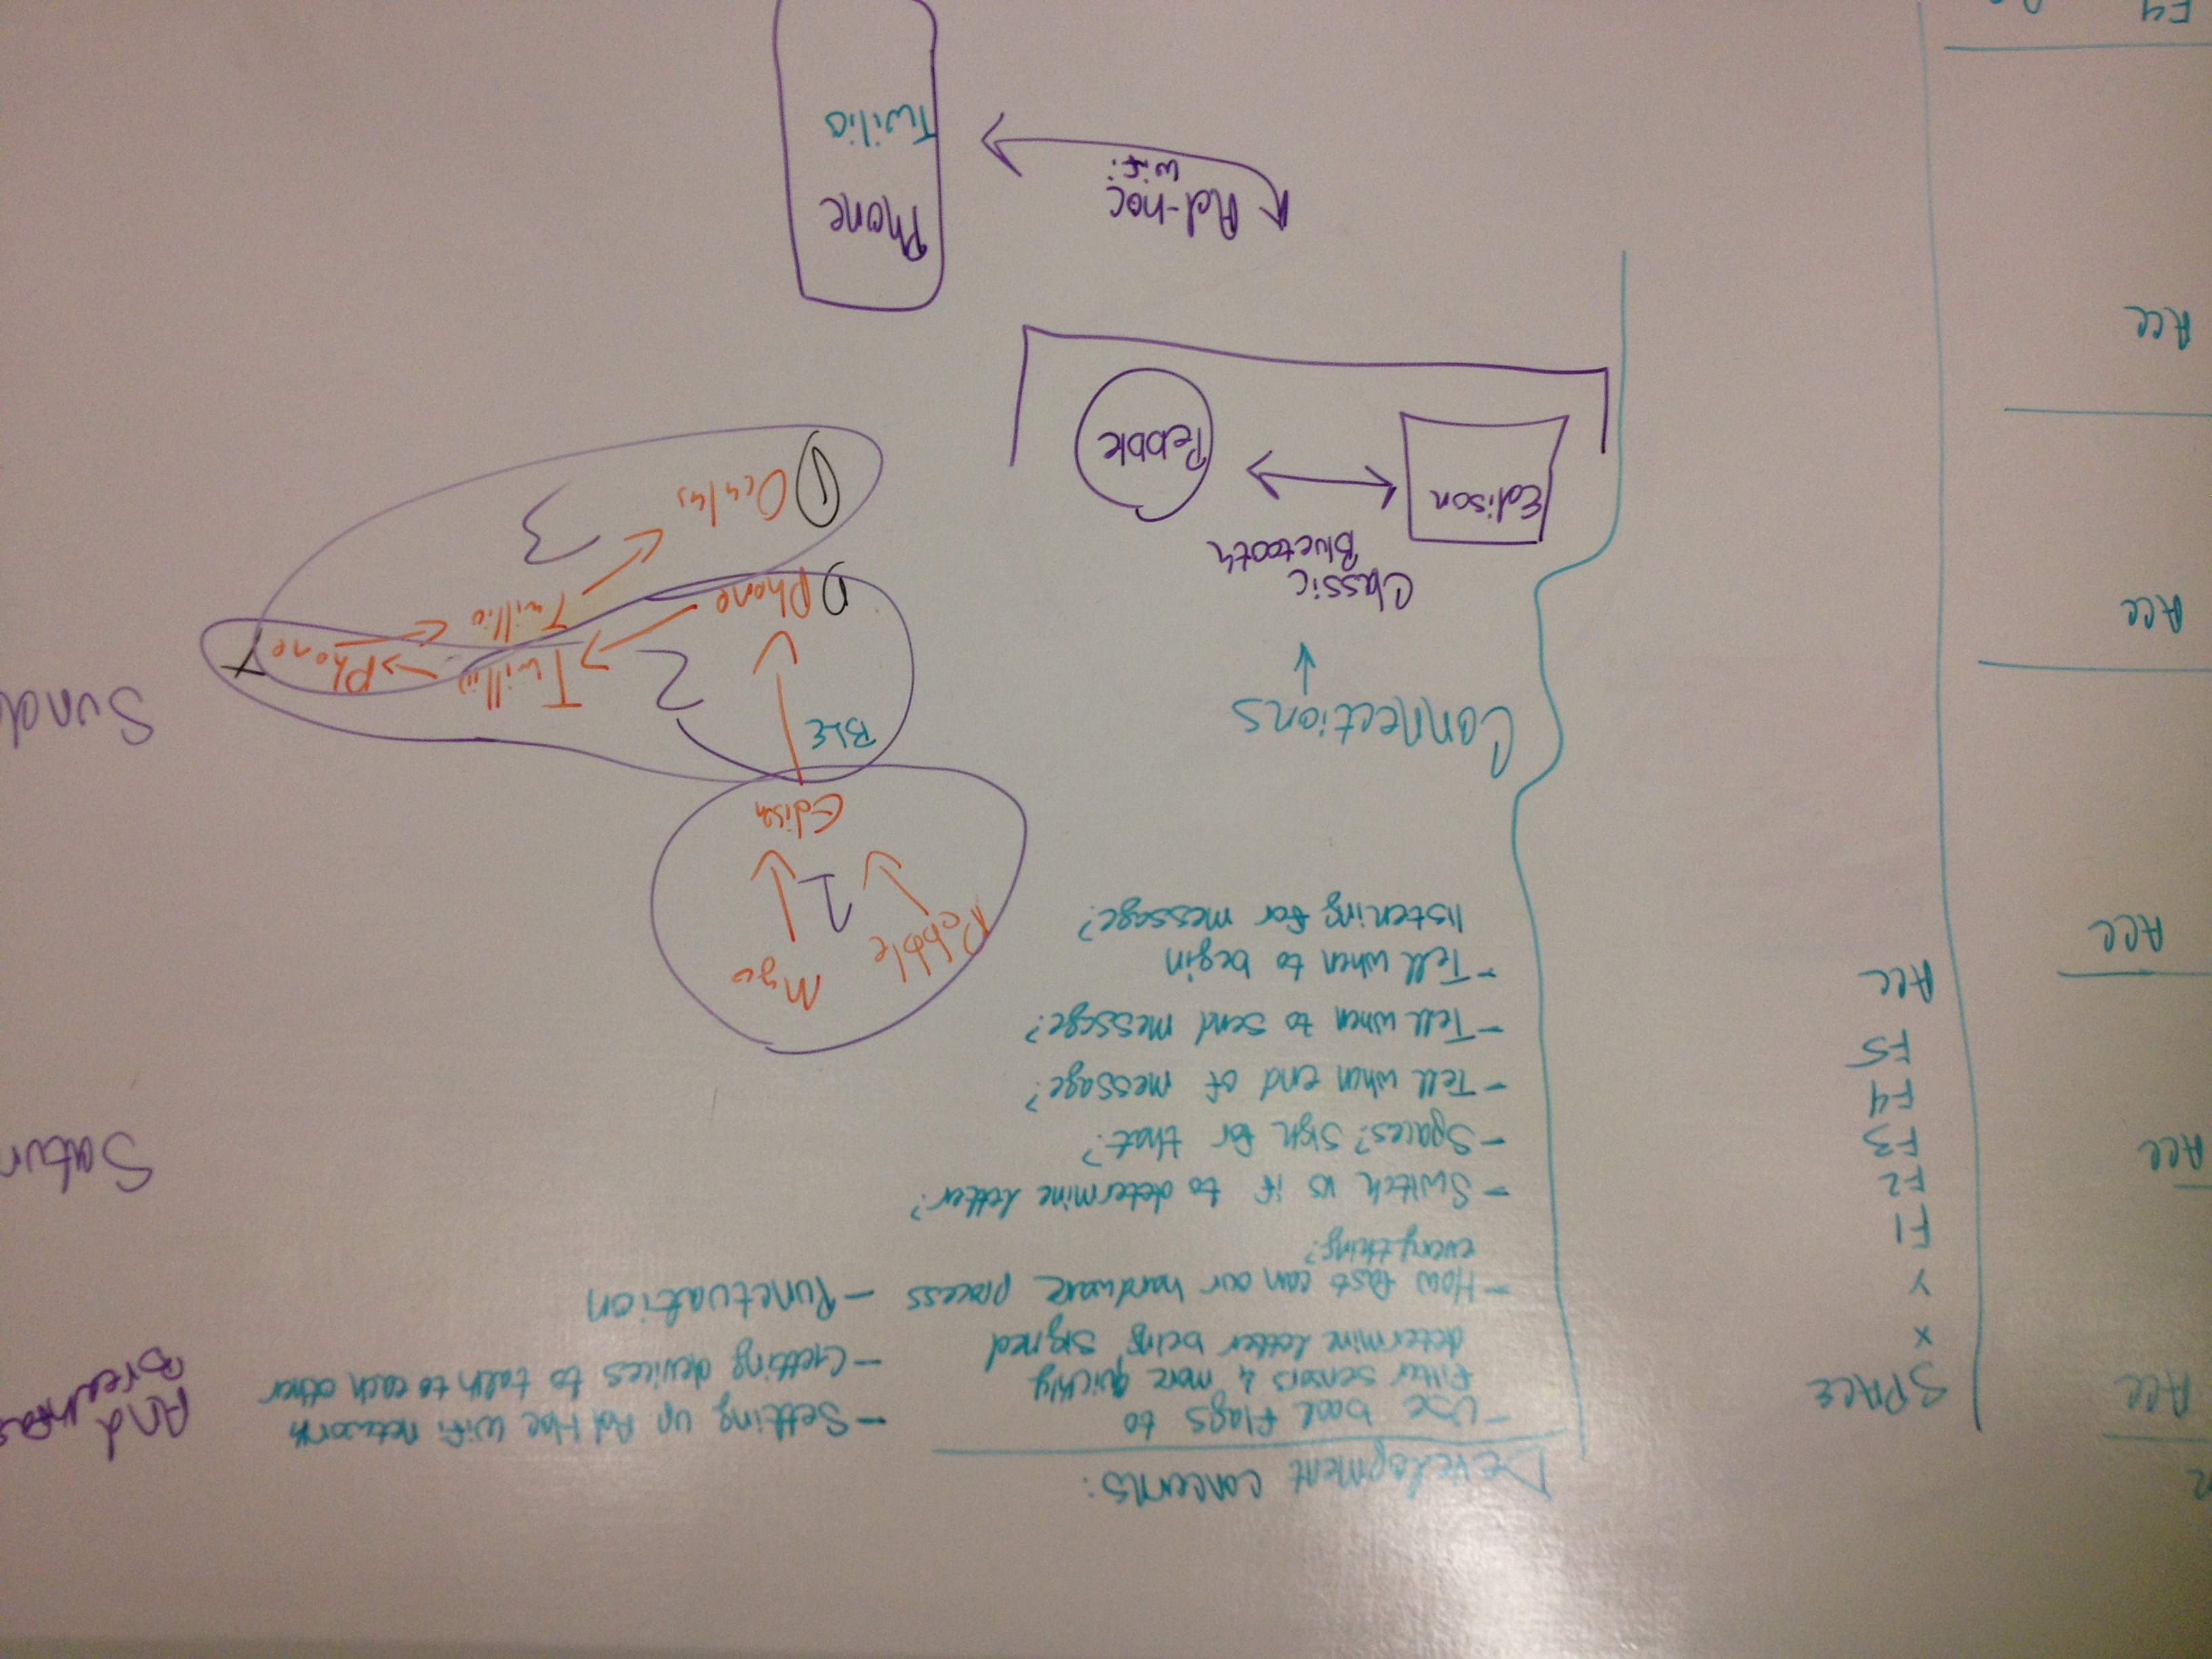 Development concerns:
- Use bool flags to
filter sensors & more quickly
determine letter being signed
- How fast can our hardware process
everything?
- Switch vs if to determine letter?
- Spaces? Sign for that?
- Tell when end of message?
- Tell when to send message?
- Tell when to begin
listening for message?
- Setting up Ad Hoc wifi network
- Getting devices to talk to each other
- Punctuation
Connections
Classic
Bluetooth
Edison
Pebble
Ad-hoc
wifi
Phone
Twilio
Pebble
Myo
1
Edison
BLE
2
Phone
Twillio
Phone
Twillio
3
Oculus
SPACE
X
Y
F1
F2
F3
F4
F5
ACC
ACC
ACC
ACC
ACC
ACC
F4
And
Satur
Sund